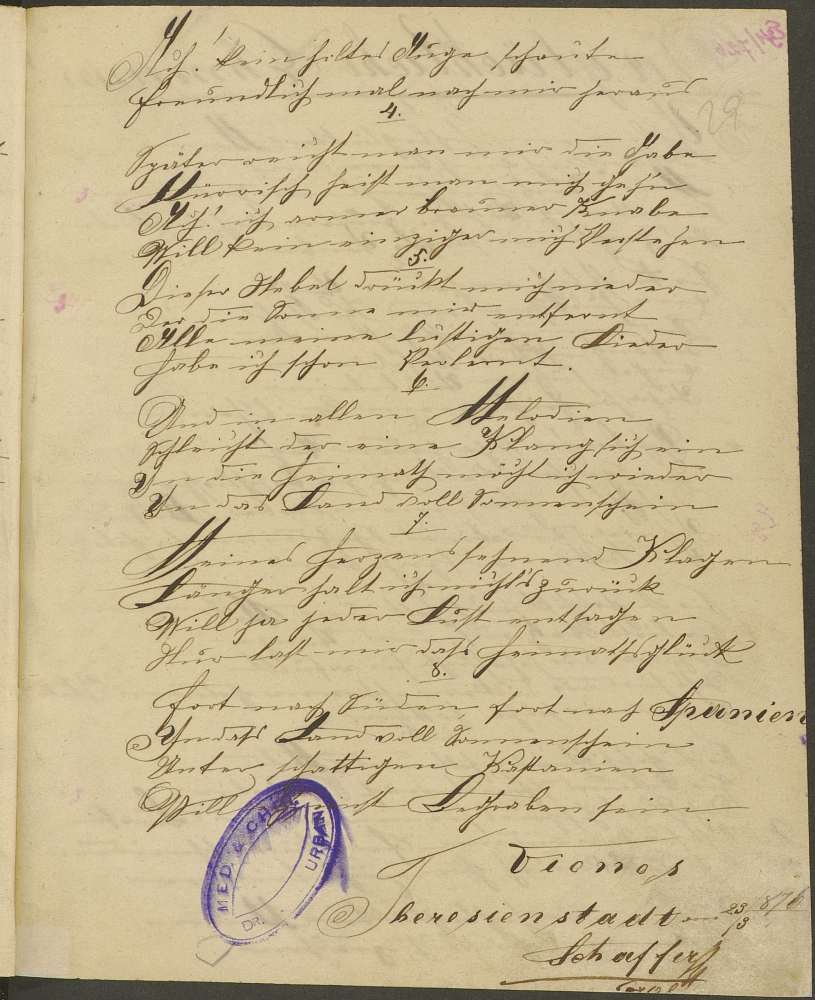 Ach! kein holtes Auge schaute
Freundlich mal nach mir heraus
29
4.
Später reicht man mir die Gabe
Mürrisch heist man mich geh'n
Ach! ich armer brauner Knabe
Will kein einziger mich Verstehen
5.
Dieser Nebel drückt mich nieder
Der die Sonne mir entfernt
Alle meine lustigen Lieder
Habe ich schon Verlernt.
6.
Und in allen Melodien
Schleicht der eine Klang sich ein
In die Heimath möcht ich wieder
In das Land voll Sonnenschein
7.
Meines Herzens sehnend Klagen
Länger halt ich nicht's zurück
Will ja jeder Lust entsagen
Nur last mir dass Heimathsglück
8.
Fort nach Süden, fort nach Spanien
In dass Land voll Sonnenschein
Unter schattigen Kastanien
Will einst Begraben sein.
MED. & CH
DR. URBAN
Theresienstadt am 23/3 1876
Schaffer